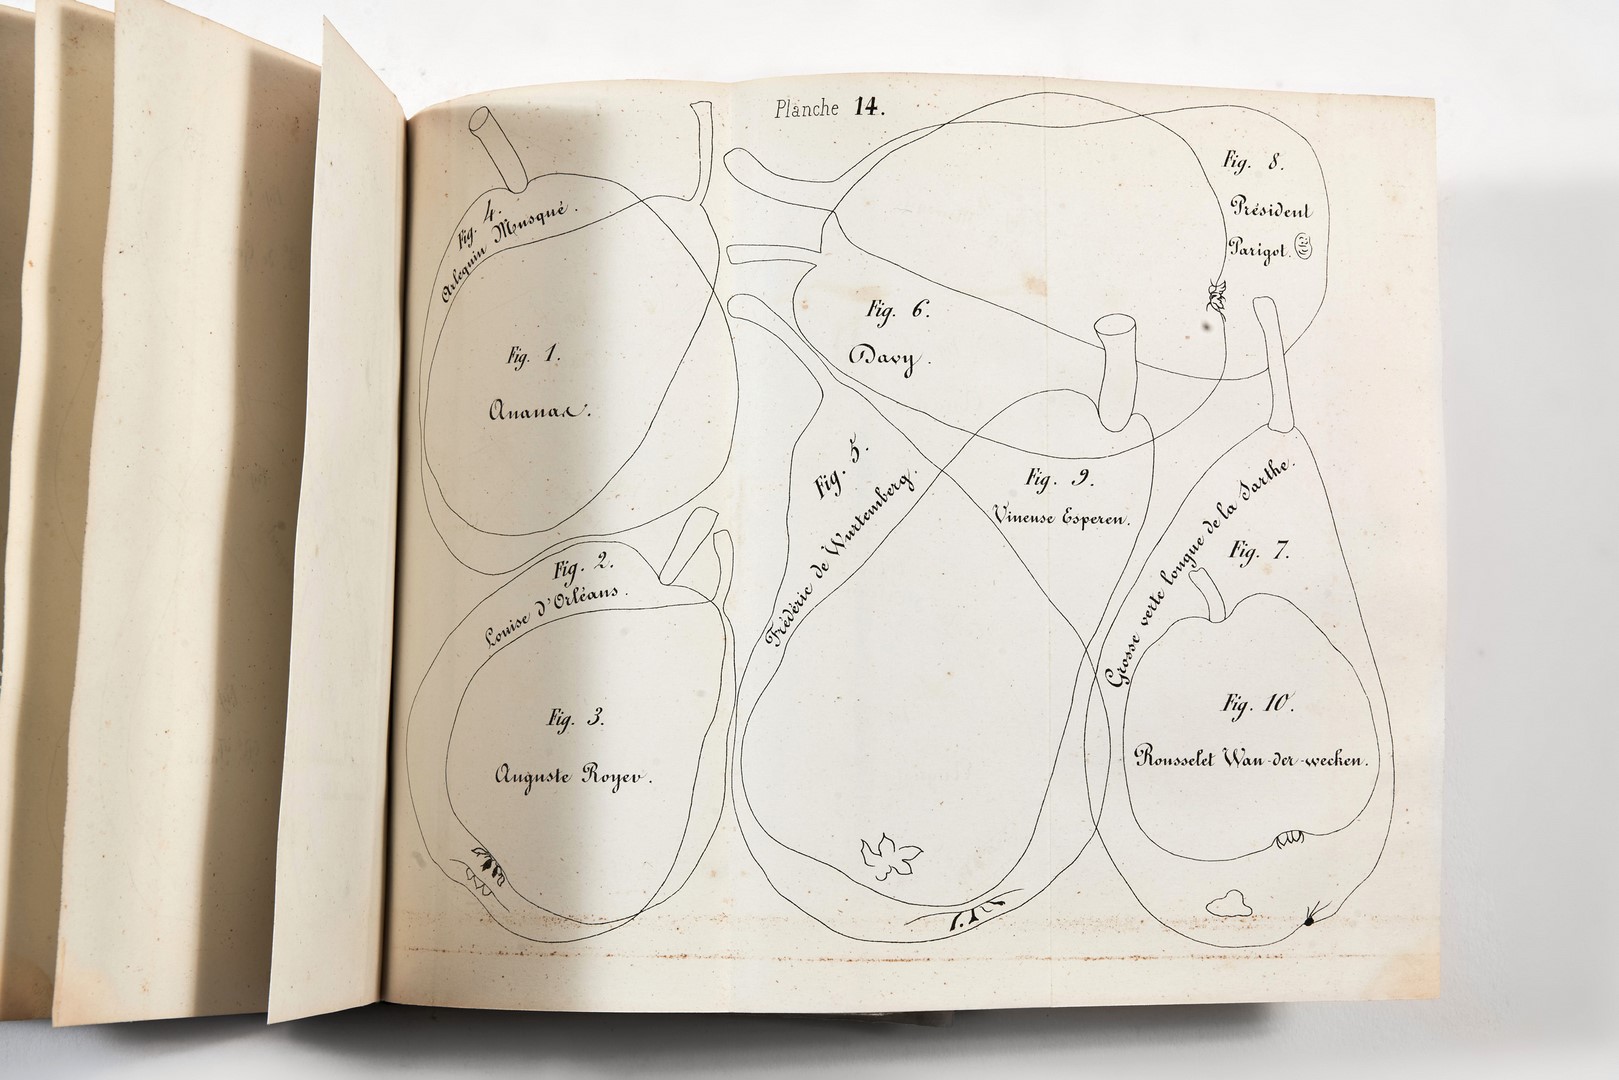 Planche 14.
Fig. 4.
Arlequin Musqué.
Fig. 1.
Ananas.
Fig. 2.
Louise d'Orléans.
Fig. 3.
Auguste Royer.
Fig. 8.
Président
Parigot.
Fig. 6.
Davy.
Fig. 5.
Frédéric de Wurtemberg.
Fig. 9.
Vineuse Esperen.
Grosse verte longue de la Sarthe.
Fig. 7.
Fig. 10.
Rousselet Wan-der-wecken.